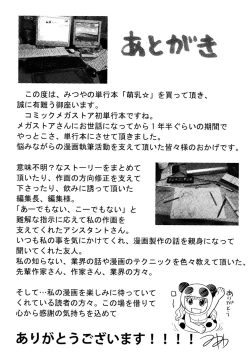 あとがき
この度は、みつやの単行本「萌乳☆」を買って頂き、
誠に有難う御座います。
コミックメガストア初単行本ですね。
メガストアさんにお世話になってから1年半ぐらいの期間で
やっとこさ、単行本にさせて頂きました。
悩みながらの漫画執筆活動を支えて頂いた皆様々のおかげです。
意味不明？なストーリーをまとめて
頂いたり、作画の方向修正を支えて
下さったり、飲みに誘って頂いた
編集長、編集様。
「あーでもない、こーでもない」と
難解な指示に応えて私の作画を
支えてくれたアシスタントさん。
いつも私の事を気にかけてくれ、漫画製作の話を親身になって
聞いてくれた友人。
私の知らない、業界の話や漫画のテクニックを色々教えて頂いた、
先輩作家さん、作家さん、業界の方々。
そして…私の漫画を楽しみに待っていて
くれている読者の方々。この場を借りて
心から感謝の気持ちを込めて
ありがとうございます！！！！
ありがとう